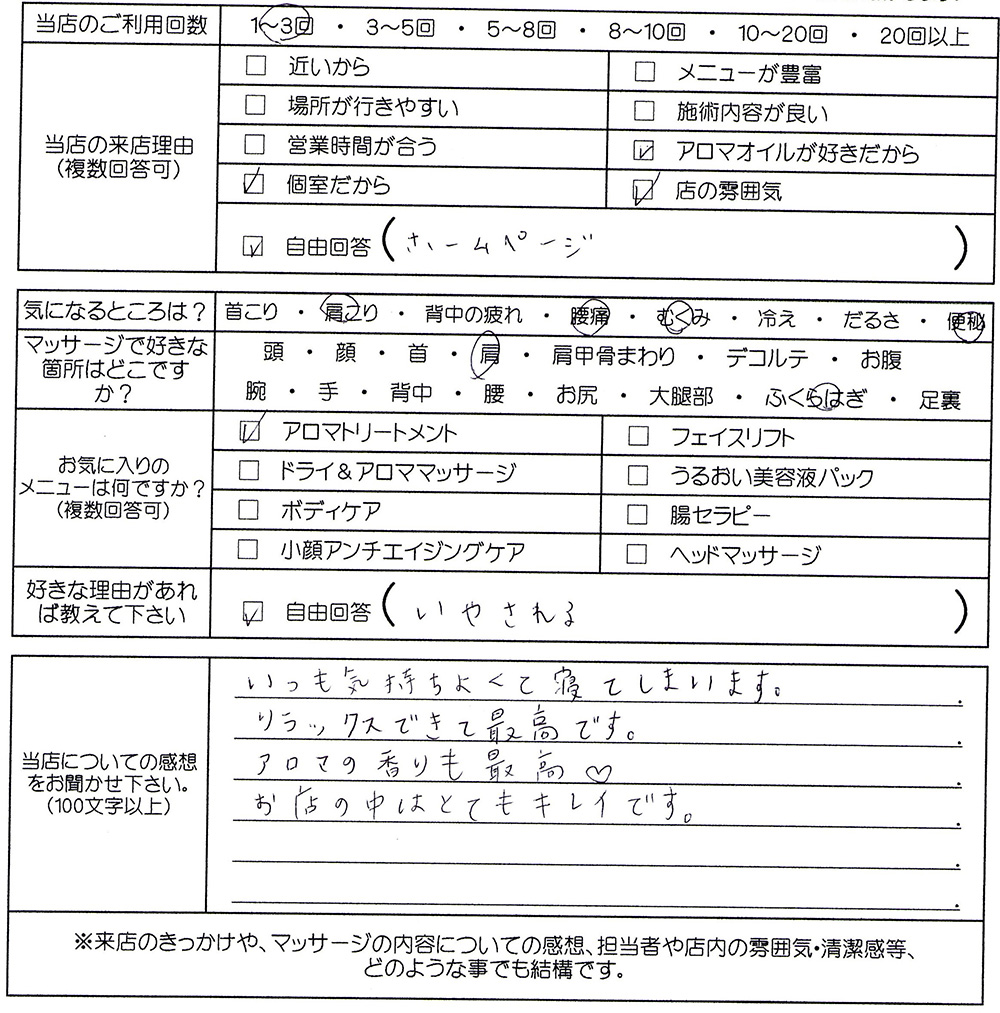 当店のご利用回数 1〜3回 ・ 3〜5回 ・ 5〜8回 ・ 8〜10回 ・ 10〜20回 ・ 20回以上
当店の来店理由
(複数回答可)
□ 近いから □ メニューが豊富
□ 場所が行きやすい □ 施術内容が良い
□ 営業時間が合う ☑ アロマオイルが好きだから
☑ 個室だから ☑ 店の雰囲気
☑ 自由回答 (ホームページ)
気になるところは? 首こり ・ 肩こり ・ 背中の疲れ ・ 腰痛 ・ むくみ ・ 冷え ・ だるさ ・ 便秘
マッサージで好きな
箇所はどこです
か?
頭 ・ 顔 ・ 首 ・ 肩 ・ 肩甲骨まわり ・ デコルテ ・ お腹
腕 ・ 手 ・ 背中 ・ 腰 ・ お尻 ・ 大腿部 ・ ふくらはぎ ・ 足裏
お気に入りの
メニューは何ですか?
(複数回答可)
☑ アロマトリートメント □ フェイスリフト
□ ドライ&アロママッサージ □ うるおい美容液パック
□ ボディケア □ 腸セラピー
□ 小顔アンチエイジングケア □ ヘッドマッサージ
好きな理由があれ
ば教えて下さい
☑ 自由回答 (いやされる)
当店についての感想
をお聞かせ下さい。
(100文字以上)
いつも気持ちよくて寝てしまいます。
リラックスできて最高です。
アロマの香りも最高♡
お店の中はとてもキレイです。
※来店のきっかけや、マッサージの内容についての感想、担当者や店内の雰囲気・清潔感等、
どのような事でも結構です。